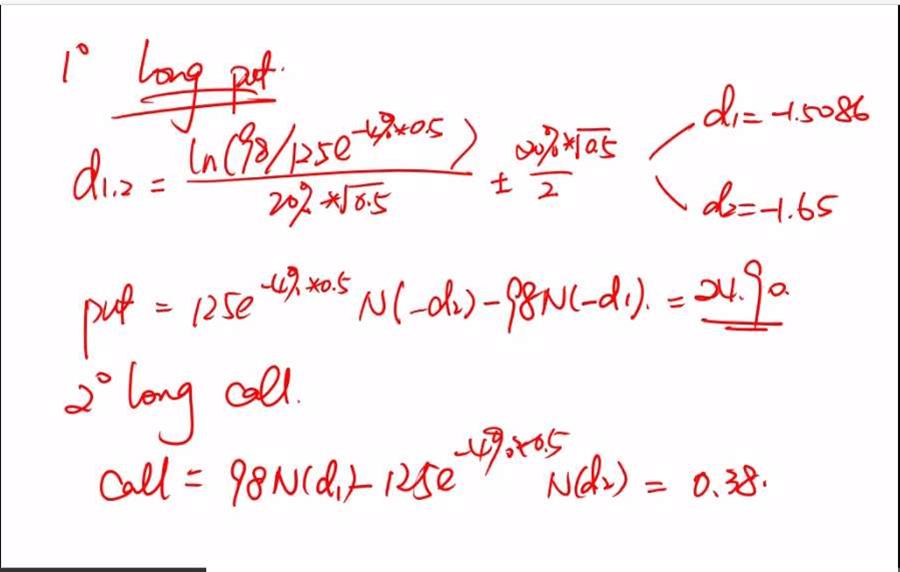 1° long put.
d₁.₂ = ln(98/125e^-4%*0.5) / 20%*√0.5 ± 20%*√0.5 / 2
d₁=-1.5086
d₂=-1.65
put = 125e^-4%*0.5 N(-d₂)-98N(-d₁). = 24.90.
2° long call.
call = 98N(d₁)-125e^-4%*0.5 N(d₂) = 0.38.